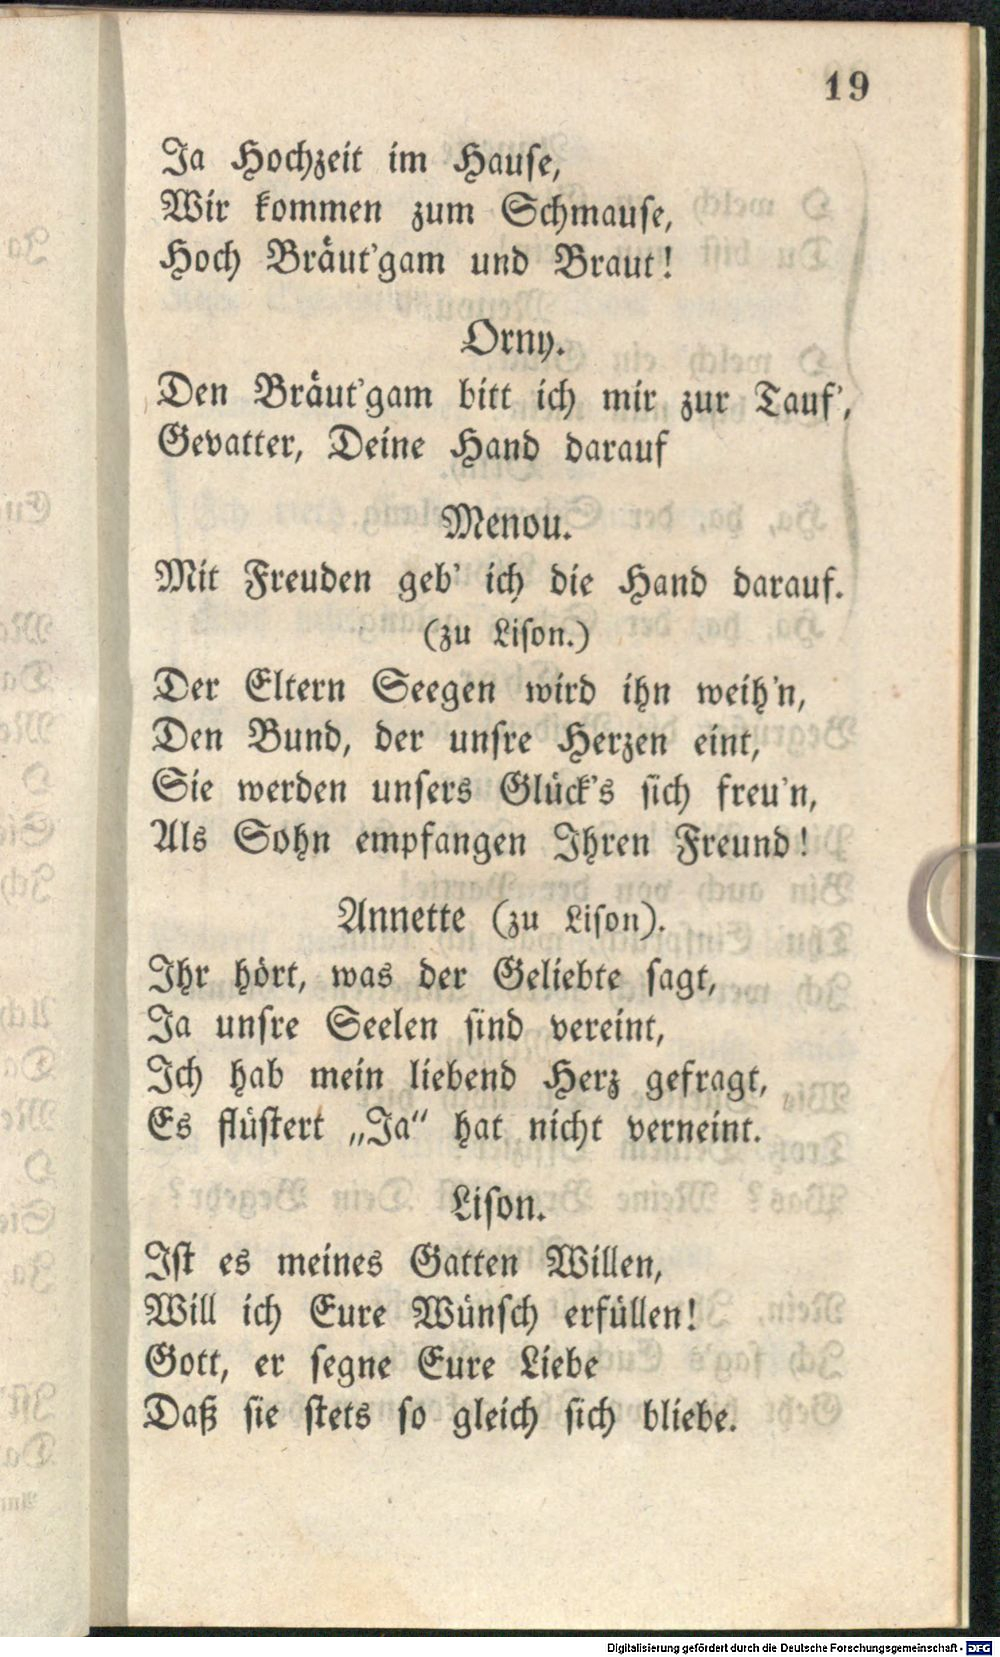 19
Ja Hochzeit im Hause,
Wir kommen zum Schmause,
Hoch Bräut'gam und Braut!
Orny.
Den Bräut'gam bitt ich mir zur Tauf',
Gevatter, Deine Hand darauf
Menou.
Mit Freuden geb' ich die Hand darauf.
(zu Lison.)
Der Eltern Seegen wird ihn weih'n,
Den Bund, der unsre Herzen eint,
Sie werden unsers Glück's sich freu'n,
Als Sohn empfangen Ihren Freund!
Annette (zu Lison).
Ihr hört, was der Geliebte sagt,
Ja unsre Seelen sind vereint,
Ich hab mein liebend Herz gefragt,
Es flüstert „Ja“ hat nicht verneint.
Lison.
Ist es meines Gatten Willen,
Will ich Eure Wünsch erfüllen!
Gott, er segne Eure Liebe
Daß sie stets so gleich sich bliebe.
Digitalisierung gefördert durch die Deutsche Forschungsgemeinschaft - DFG